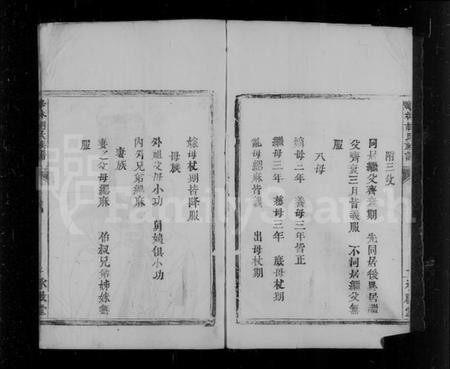 附三父
同居繼父齊衰期 先同居後異居繼
父齊衰三月皆義服 不同居繼父無
服
八母
嫡母三年 養母三年皆正
繼母三年 慈母三年 庶母杖期
乳母緦麻皆義 出母杖期
嫁母杖期皆降服
母族
外祖父母小功 舅姨俱小功
內外兄弟緦麻
妻族
妻之父母緦麻 伯叔兄弟姊妹無
服
FamilySearch